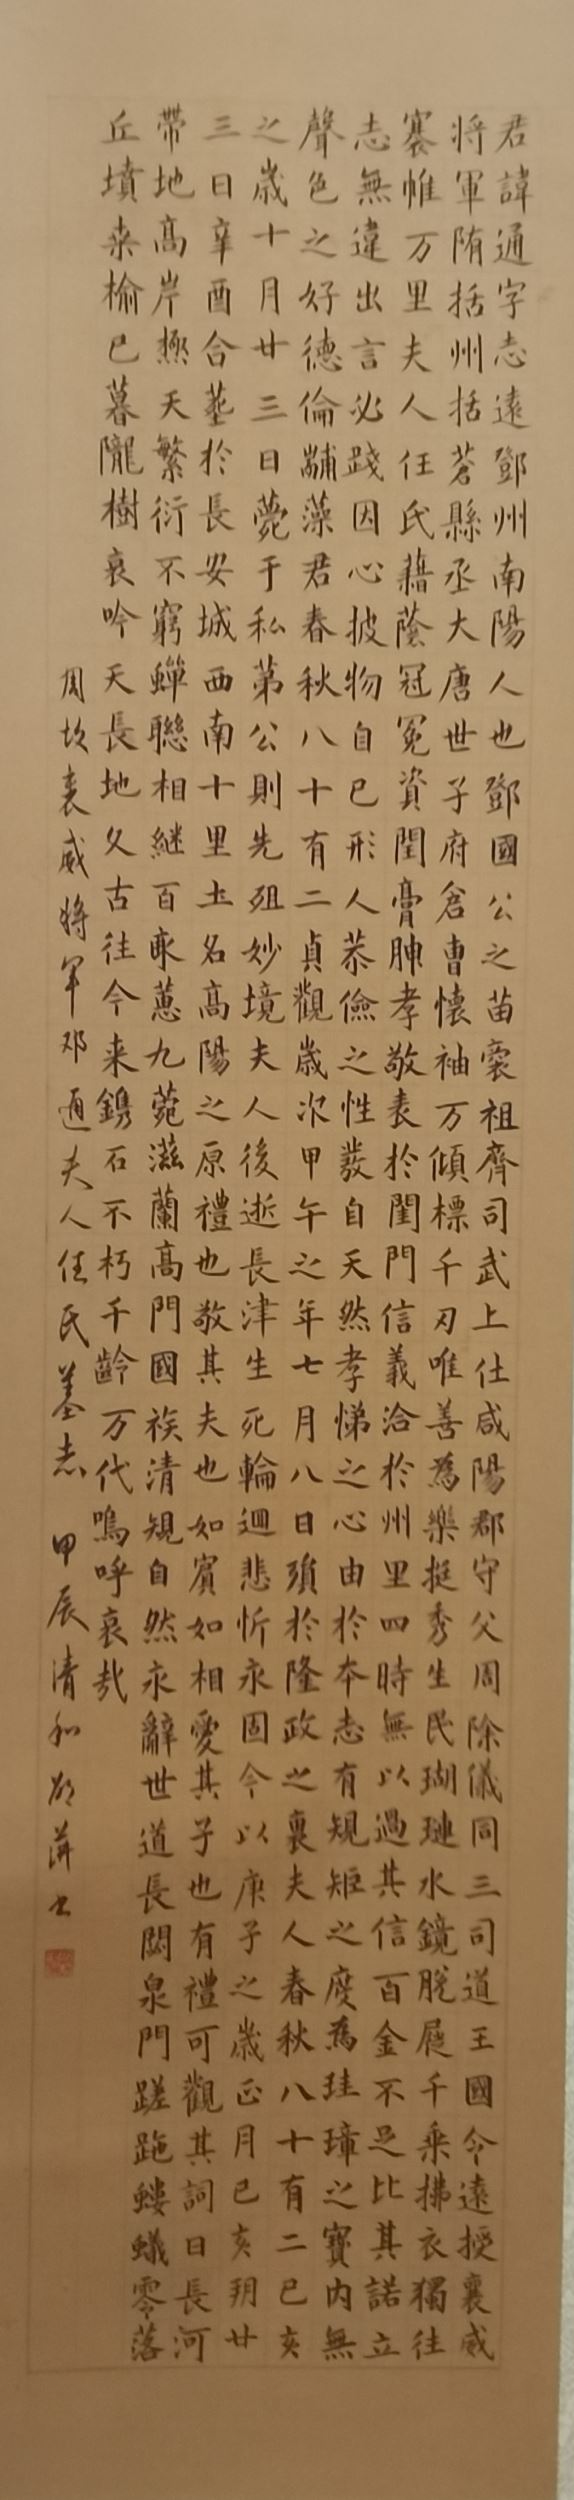 君諱通字志遠鄧州南陽人也鄧國公之苗裔祖齊司武上仕咸陽郡守父周除儀同三司道王國令遠授襄威
将軍隋括州括蒼縣丞大唐世子府倉曹懐袖万傾標千刃唯善為樂挺秀生民瑚璉水鏡脫屣千乘拂衣獨往
褰帷万里夫人任氏藉蔭冠冕資閏膏腴孝敬表於閨門信義洽於州里四時無以過其信百金不足比其諾立
志無違出言必踐因心披物自已形人恭儉之性發自天然孝悌之心由於本志有規矩之度為珪璋之寶内無
聲色之好德倫黼藻君春秋八十有二貞觀歲次甲午之年七月八日殯於隆政之裏夫人春秋八十有二已亥
之歲十月廿三日薨于私第公則先殂妙境夫人後逝長津生死輪迴悲忻永固今以庚子之歲正月已亥朔廿
三日辛酉合墓於長安城西南十里土名高陽之原禮也敬其夫也如賓如相愛其子也有禮可觀其詞曰長河
帶地高岸極天繁衍不窮蟬聯相継百畝蕙九菀滋蘭高門國族清規自然永辭世道長閟泉門蹉跎螻蟻零落
丘墳桒榆已暮隴樹哀吟天長地久古往今来鐫石不朽千齡万代嗚呼哀哉
周故襄威将軍邓通夫人任氏墓志 甲辰清和 萍书